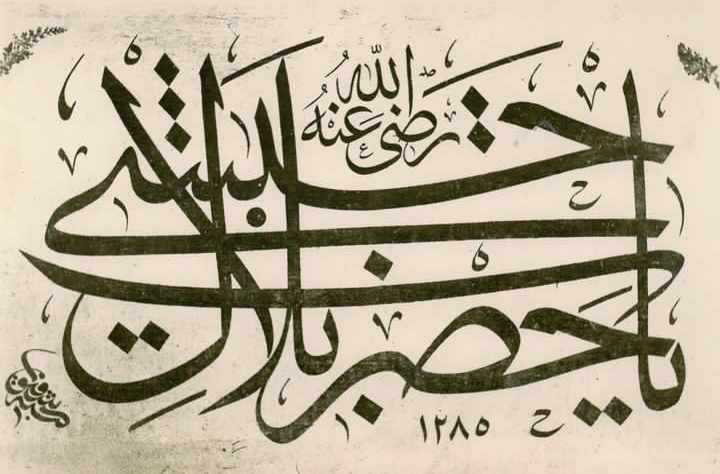 يا حضرت بلال حبشى
رضى الله عنه
١٢٨٥